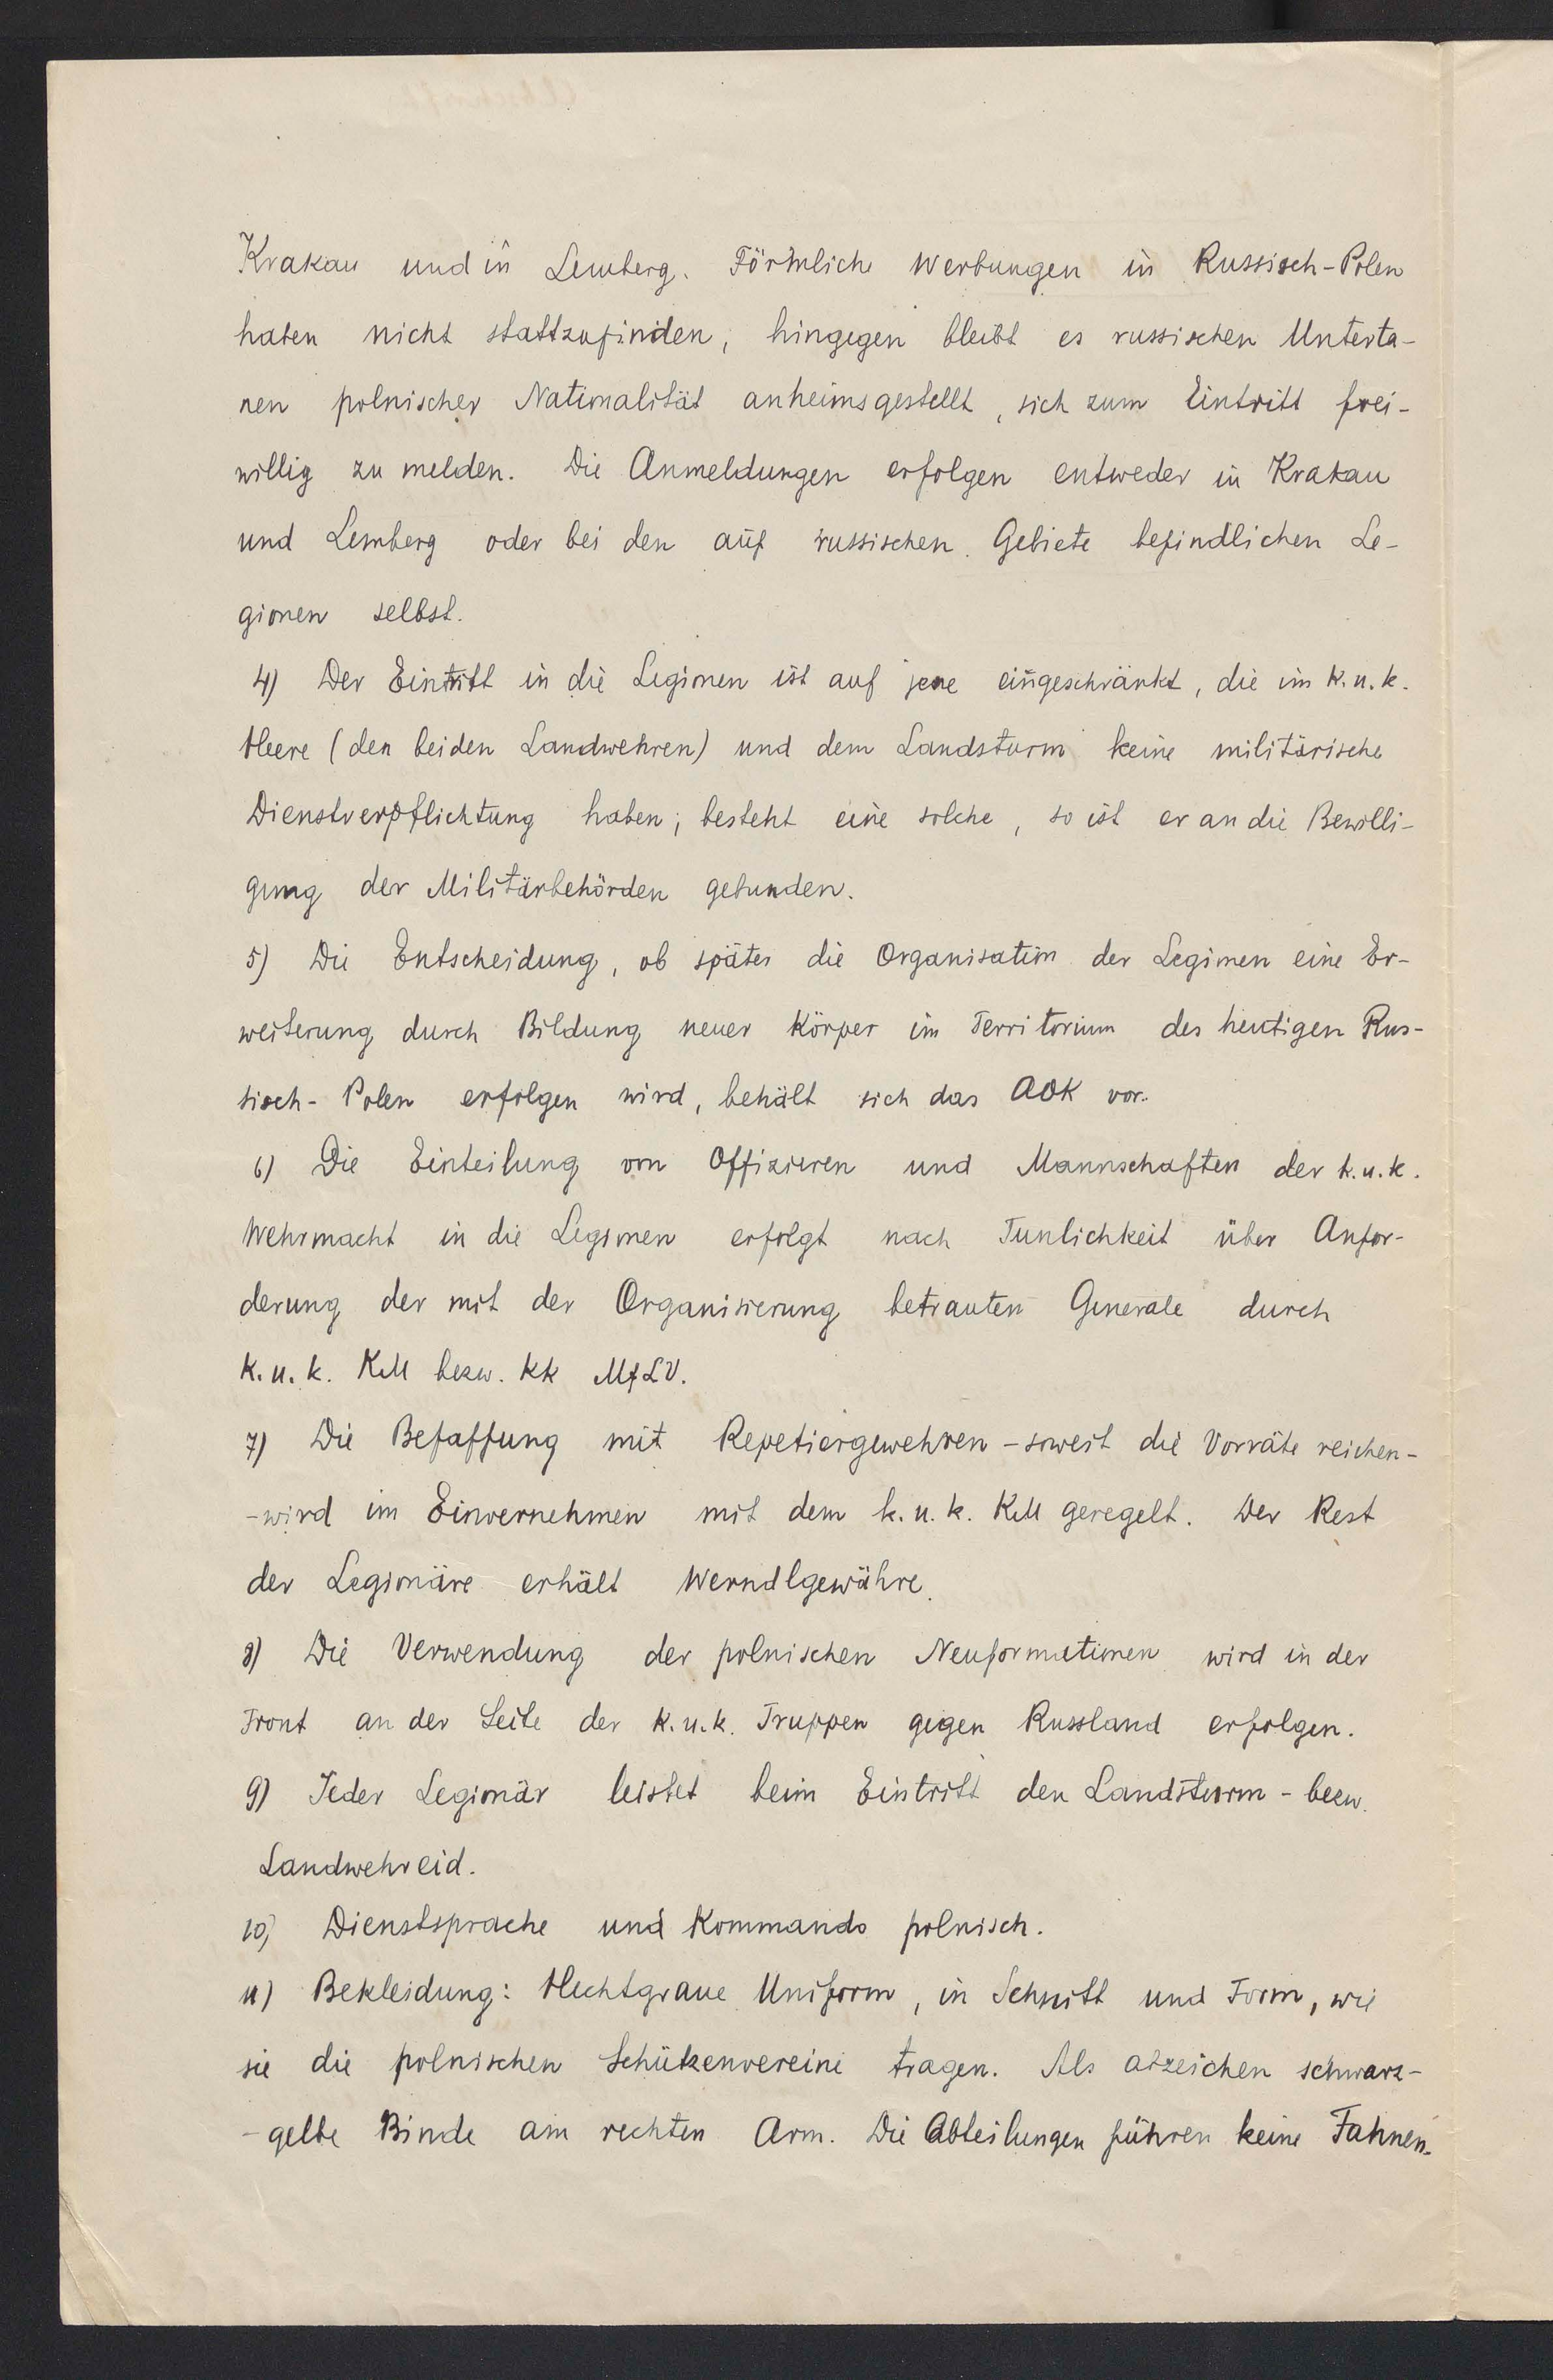 Krakau und in Lemberg. Förmliche Werbungen in Russisch-Polen
haben nicht stattzufinden, hingegen bleibt es russischen Unterta-
nen polnischer Nationalität anheimsgestellt, sich zum Eintritt frei-
willig zu melden. Die Anmeldungen erfolgen entweder in Krakau
und Lemberg oder bei den auf russischen Gebiete befindlichen Le-
gionen selbst.
4) Der Eintritt in die Legionen ist auf jene eingeschränkt, die im k.u.k.
Heere (den beiden Landwehren) und dem Landsturm keine militärische
Dienstverpflichtung haben; besteht eine solche, so ist er an die Bewilli-
gung der Militärbehörden gebunden.
5) Die Entscheidung, ob später die Organisation der Legionen eine Er-
weiterung durch Bildung neuer Körper im Territorium des heutigen Rus-
sisch-Polen erfolgen wird, behält sich das AOK vor.
6) Die Einteilung von Offizieren und Mannschaften der k.u.k.
Wehrmacht in die Legionen erfolgt nach Tunlichkeit über Anfor-
derung der mit der Organisierung betrauten Generale durch
k.u.k. KM bezw. kk MfLV.
7) Die Befaffung mit Repetiergewehren - soweit die Vorräte reichen -
- wird im Einvernehmen mit dem k.u.k. KM geregelt. Der Rest
der Legionäre erhält Werndlgewähre.
8) Die Verwendung der polnischen Neuformationen wird in der
Front an der Seite der k.u.k. Truppen gegen Russland erfolgen.
9) Jeder Legionär leistet beim Eintritt den Landsturm - bezw.
Landwehreid.
10) Dienstsprache und Kommando polnisch.
11) Bekleidung: Hechtgraue Uniform, in Schnitt und Form, wie
sie die polnischen Schützenvereine tragen. Als abzeichen schwarz-
- gelbe Binde am rechten Arm. Die Abteilungen führen keine Fahnen.